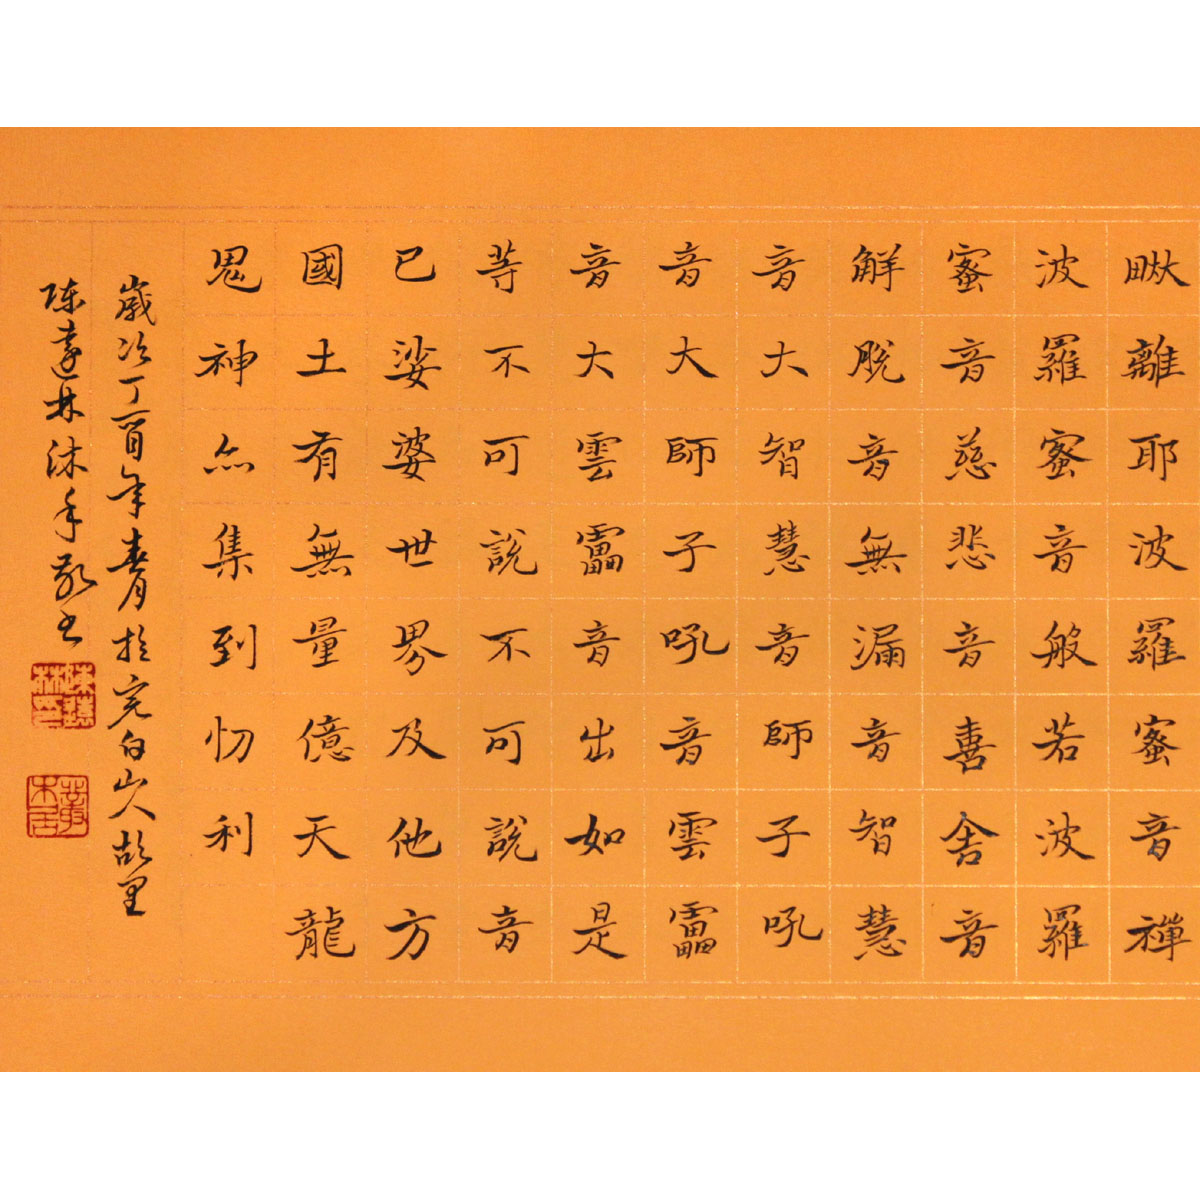 毗離耶波羅蜜音禪
波羅蜜音般若波羅
蜜音慈悲音喜舍音
解脫音無漏音智慧
音大智慧音師子吼
音大師子吼音雲雷
音大雲雷音出如是
等不可說不可說音
已娑婆世界及他方
國土有無量億天龍
鬼神亦集到忉利
歲次丁酉年春月於完白山人故里
陳達林沐手敬書